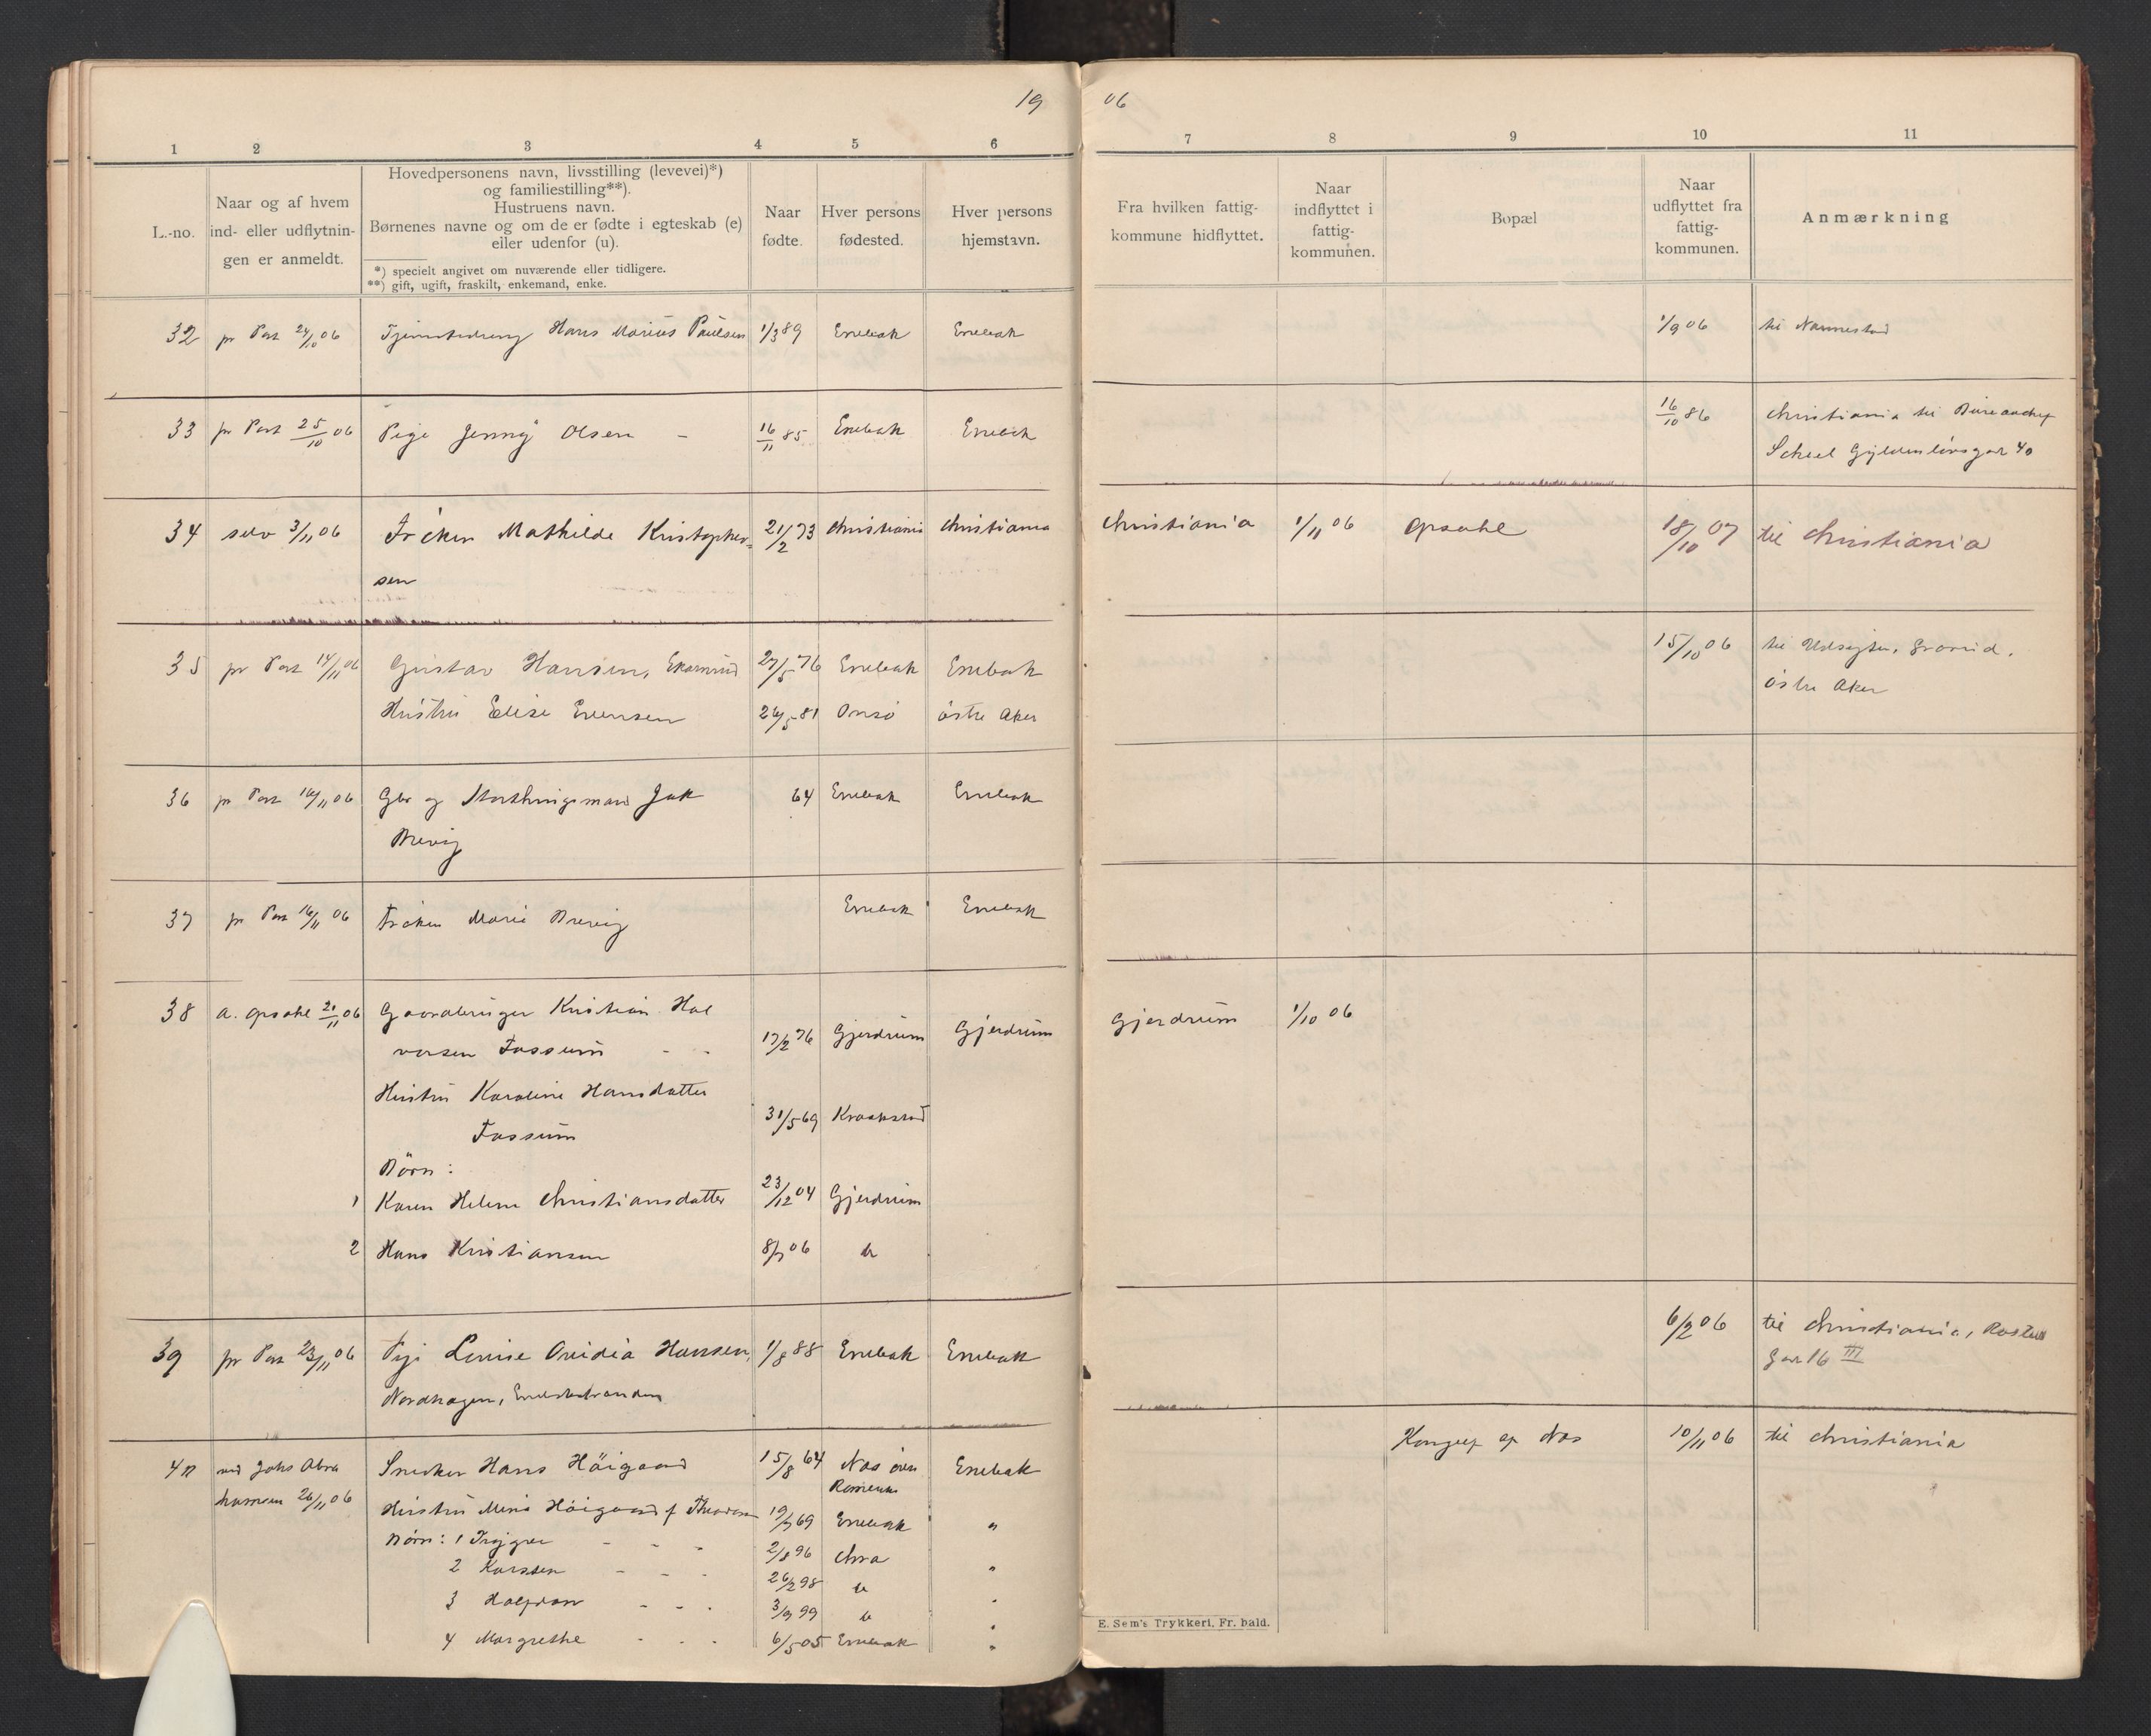 19
06
1 2 3 4 5 6
7 8 9 10 11
L.-no.
Naar og af hvem
ind- eller udflytnin-
gen er anmeldt.
Hovedpersonens navn, livsstilling (levevei)*)
og familiestilling**).
Hustruens navn.
Børnenes navne og om de er fødte i egteskab (e)
eller udenfor (u).
*) specielt angivet om nuværende eller tidligere.
**) gift, ugift, fraskilt, enkemand, enke.
Naar
fødte.
Hver persons
fødested.
Hver persons
hjemstavn.
Fra hvilken fattig-
kommune hidflyttet.
Naar
indflyttet i
fattig-
kommunen.
Bopæl
Naar
udflyttet fra
fattig-
kommunen.
Anmærkning
32 pr Post 24/10 06 Hans Marius Paulsen 1/3 89 Enebak Enebak 1/9 06 til Nannestad
33 pr Post 25/10 06 Pige Jenny Olsen - 16/11 85 Enebak Enebak 16/10 86 Christiania til
Scheel Gyldenløvsgad 40
34 selv 3/11 06 Frøken Mathilde Kristopher- 21/2 73 Christiania Christiania Christiania 1/11 06 Opsahl 18/10 07 til Christiania
sen
35 pr Post 14/11 06 Gustav Hansen, 27/5 76 Enebak Enebak 15/10 06 til Udsigten,
Hustru Elise Evensen 26/5 81 Onsø østre Aker østre Aker
36 pr Post 16/11 06 Gbr og Storthingsmand Jak 64 Enebak Enebak
Brevig
37 pr Post 16/11 06 Frøken Marie Brevig Enebak Enebak
38 a. Opsahl 21/11 06 Gaardbruger Kristian Hal
vorsen Fossum - - 17/2 76 Gjerdrum Gjerdrum Gjerdrum 1/10 06
Hustru Karoline Hansdatter
Fossum 31/5 69 Kraakstad
Børn:
1 Karen Helene Christiansdatter 23/12 04 Gjerdrum
2 Hans Kristiansen 8/7 06 do
39 pr Post 23/11 06 Pige Louise Ovidia Hansen, 1/8 88 Enebak Enebak 6/2 06 til Christiania,
Nordhagen, Gad 16 III
40 ved Johs Abra
hamsen 26/11 06
Snedker Hans Höigaard 15/8 64 Nas Enebak af Nas 10/11 06 til Christiania
Romerike
Hustru Höigaard f 69 Enebak "
Børn: 1 Trygve - - - 2/8 96 Chra
2 Karsten - - - 26/2 98 do "
3 Halfdan - - - 3/9 99 do "
4 Margrethe - - - 6/5 05 Enebak "
E. Sem's Trykkeri, Fr. hald.